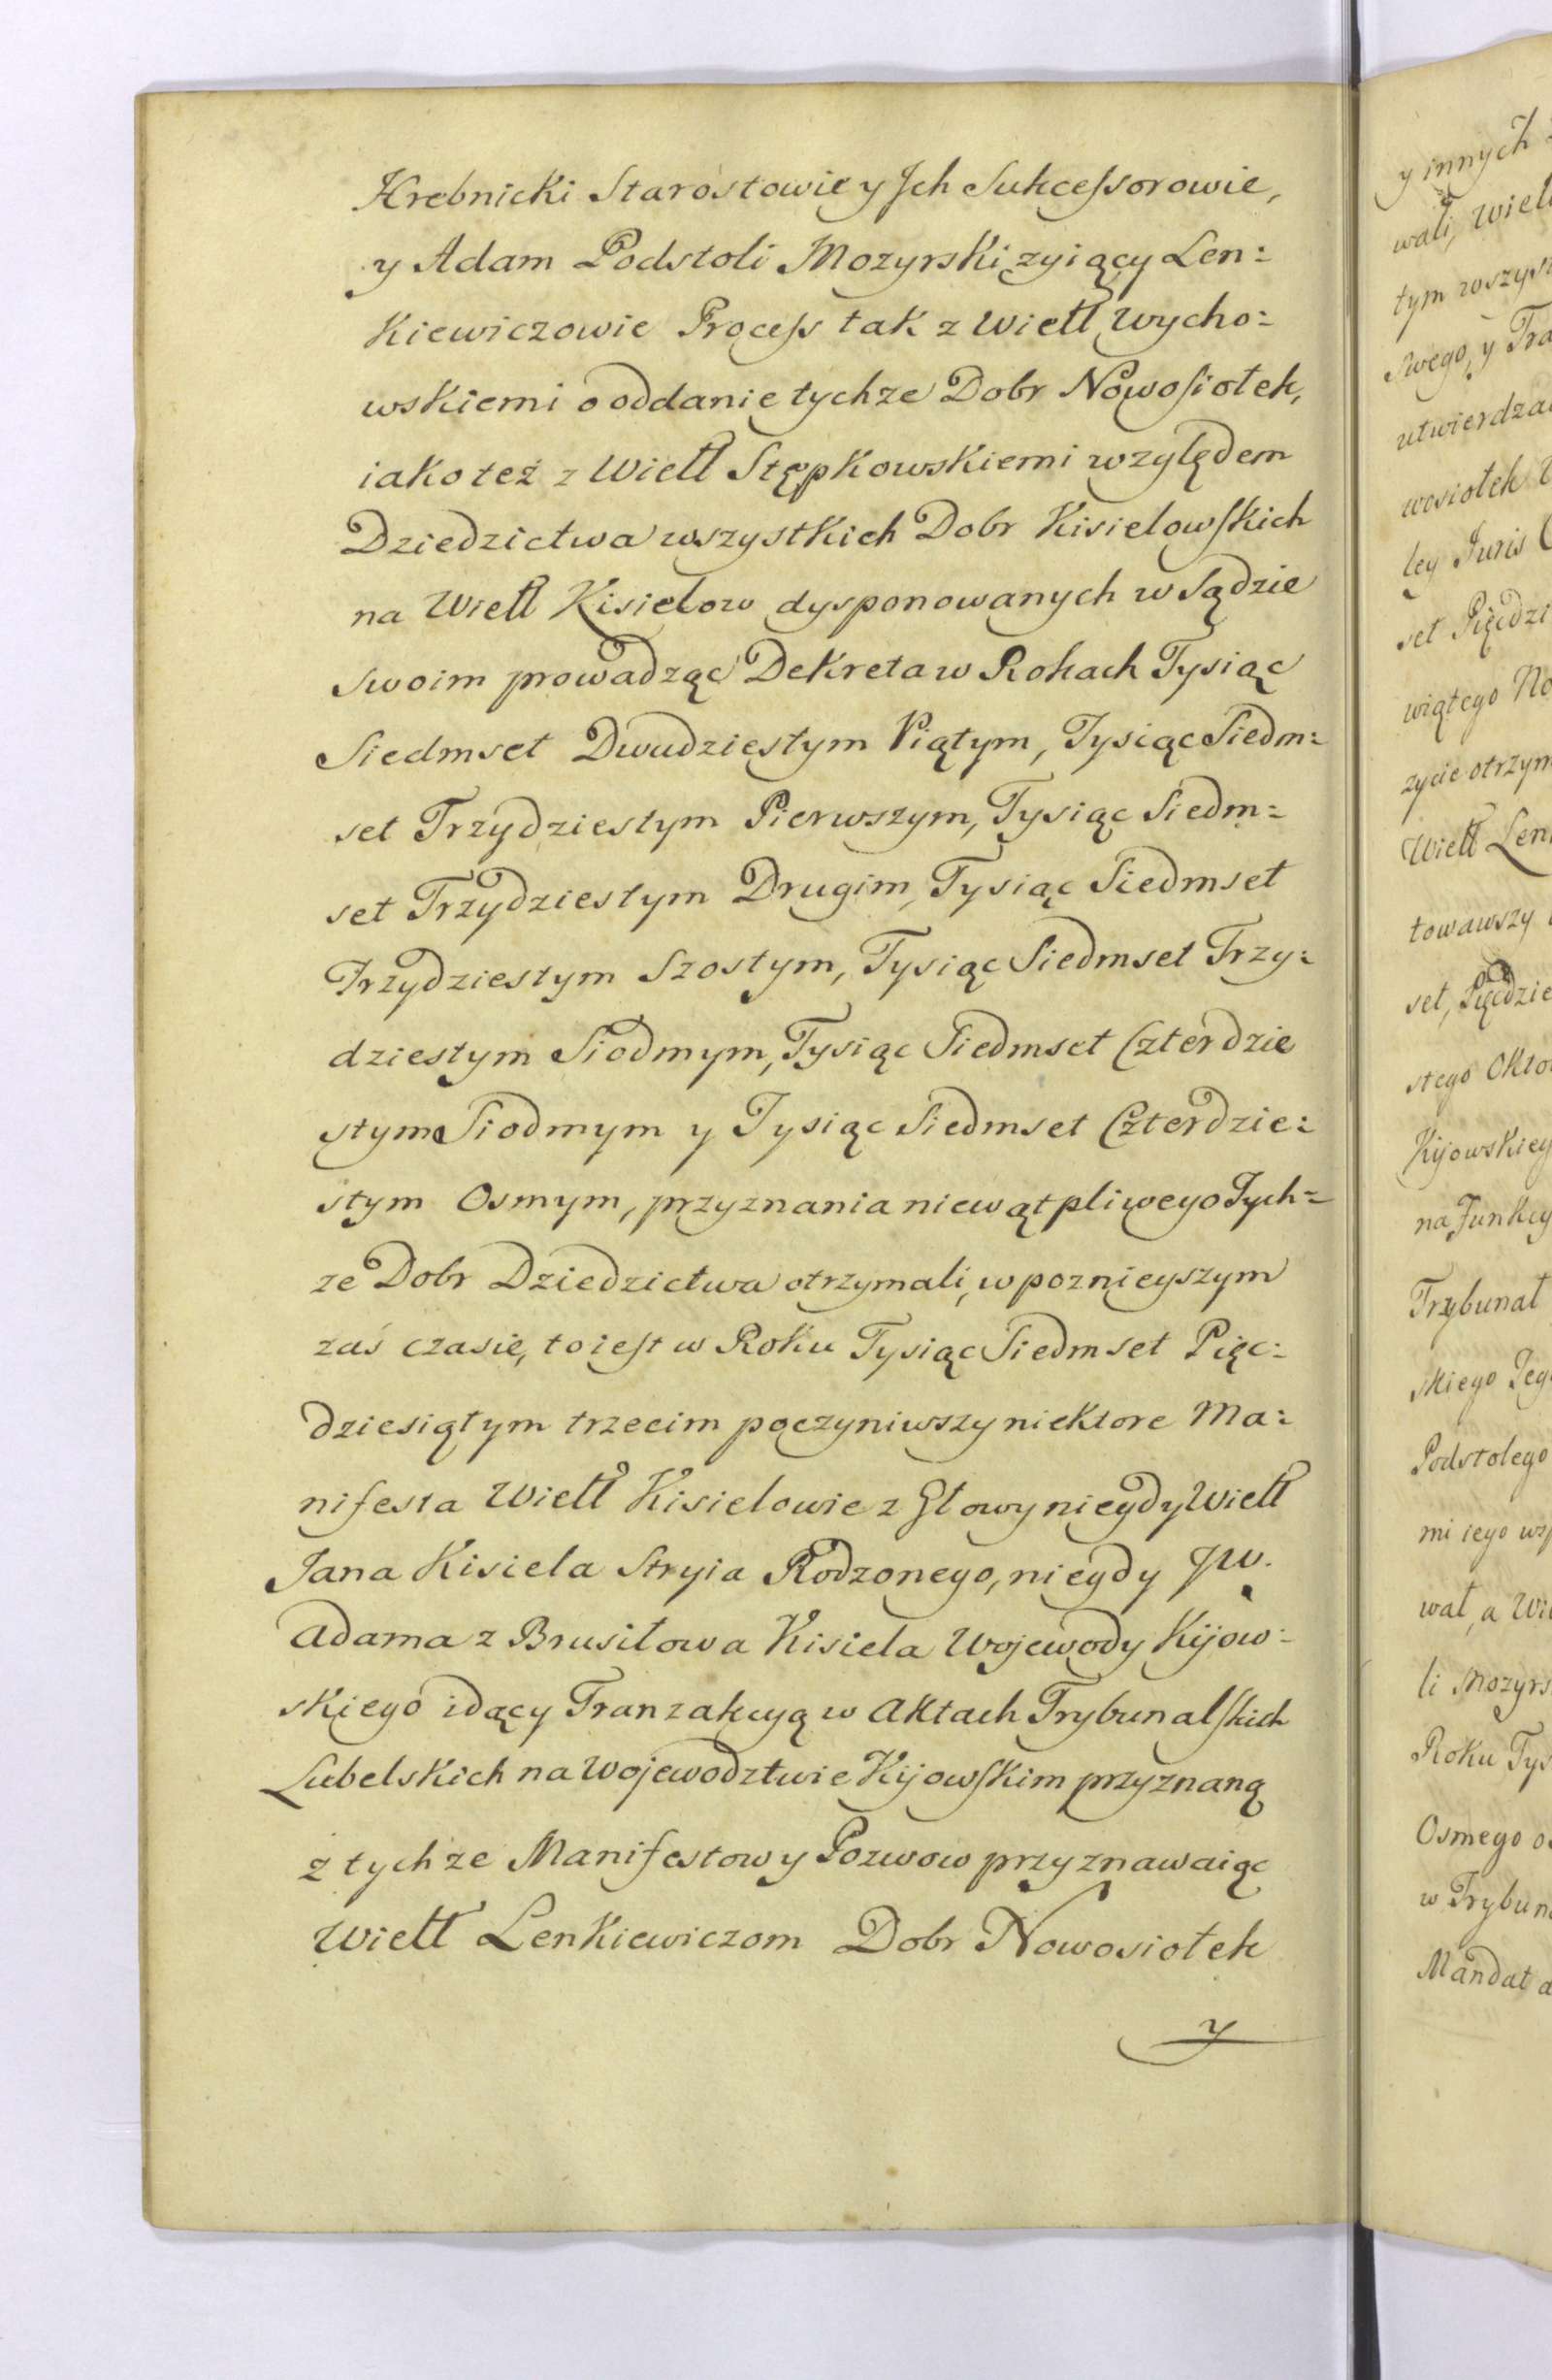 Hrebnicki Starostowie y Jch Sukcessorowie,
y Adam Podstoli Mozyrski zyiący Len:
kiewiczowie Process tak z Wiell Wycho:
wskiemi o oddanie tychze Dobr Nowosiołek,
iako też z Wiell Stępkowskiemi względem
Dziedzictwa wszystkich Dobr Kisielowskich
na Wiell Kisielow dysponowanych w Sądzie
swoim prowadząc Dekreta w Rokach Tysiąc
Siedmset Dwudziestym Piątym, Tysiąc Siedm:
set Trzydziestym Pierwszym, Tysiąc Siedm:
set Trzydziestym Drugim, Tysiąc Siedmset
Trzydziestym Szostym, Tysiąc Siedmset Trzy:
dziestym Siodmym, Tysiąc Siedmset Czterdzie
stym Siodmym y Tysiąc Siedmset Czterdzie:
stym Osmym, przyznania niewątpliwego Tych:
ze Dobr Dziedzictwa otrzymali, w poznieyszym
zaś czasie, to iest w Roku Tysiąc Siedmset Pięc:
dziesiątym trzecim poczyniwszy niektore Ma:
nifesta Wiell Kisielowie z Głowy niegdy Wiell
Jana Kisiela Stryia Rodzonego, niegdy JW.
Adama z Brusiłowa Kisiela Wojewody Kijow:
skiego idący Tranzakcyą w Aktach Trybunalskich
Lubelskich na Wojewodztwie Kijowskim przyznaną
z tychze Manifestow y Pozwow przyznawaiąc
Wiell Lenkiewiczom Dobr Nowosiołek
y
y innych
wali, Wiel
tym wszys
Swego, y Tra
utwierdza
wosiołek
ley Juris
set Pięćdzi
wiątego No
zycie otrzym
Wiell Len
towawszy
set, Pięćdzie
stego Okto
Kijowskiey
na Funkcy
Trzybunał
skiego Jeg
Podstolego
mi iego wsp
wał, a Wi
li Mozyrs
Roku Tys
Osmego o
w Trybun
Mandat a